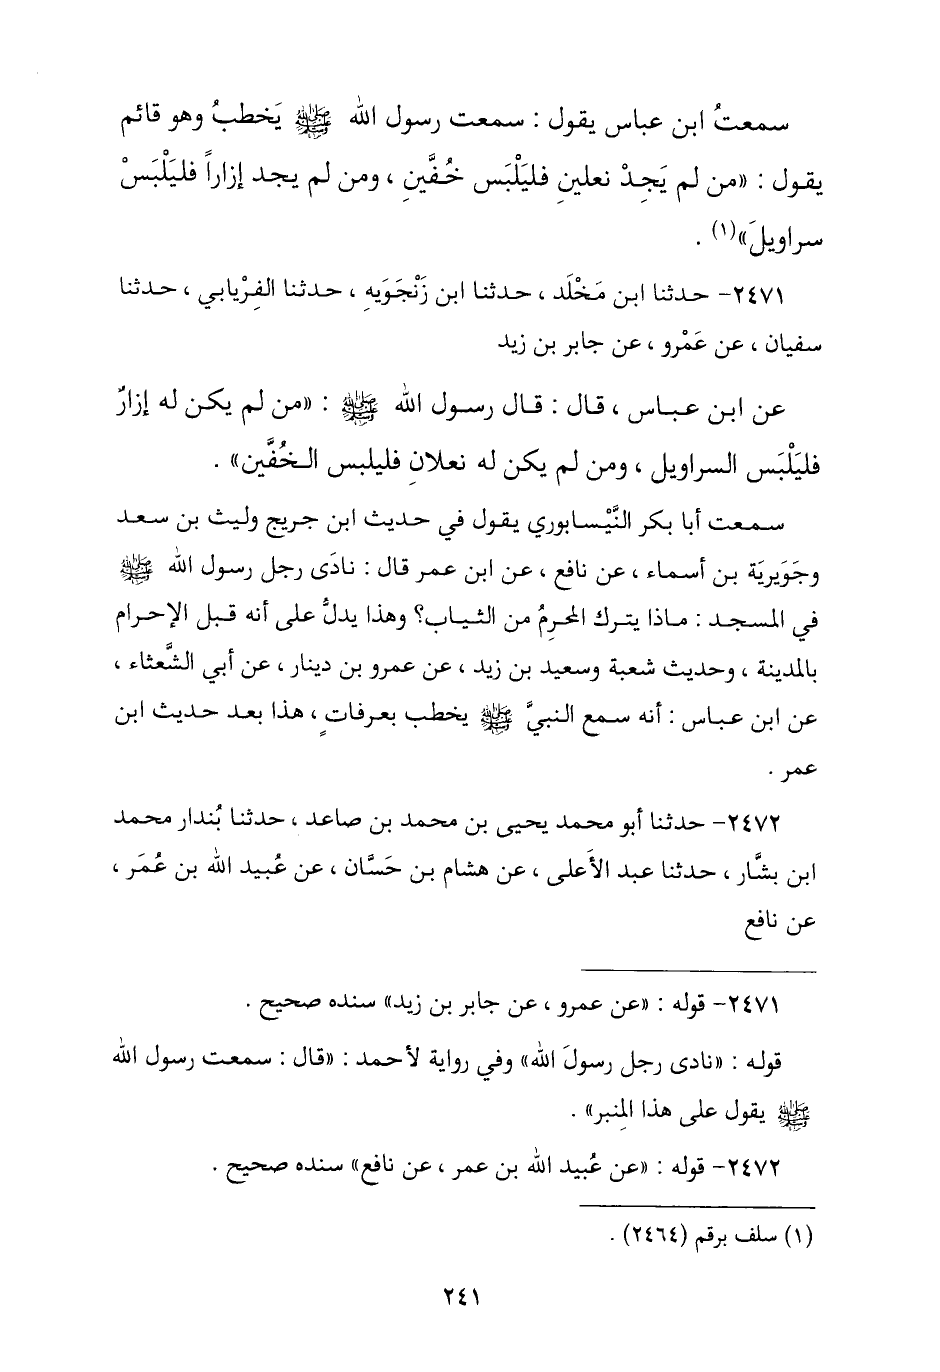 سمعتُ ابن عباس يقول : سمعت رسول الله ﷺ يَخطبُ وهو قائم
يقول : «من لم يَجِدْ نعلينِ فليَلْبَس خُفَّينِ ، ومن لم يجد إزاراً فليَلْبَسْ
سراويلَ»(١) .
٢٤٧١- حدثنا ابن مَخْلَد ، حدثنا ابن زَنْجَوَيهِ ، حدثنا الفِرْيابي ، حدثنا
سفيان ، عن عَمْرو ، عن جابر بن زيد
عن ابن عباس ، قال : قال رسول الله ﷺ : «من لم يكن له إزارٌ
فليَلْبَس السراويل ، ومن لم يكن له نعلانِ فليلبس الخُفَّين» .
سمعت أبا بكر النَّيْسابوري يقول في حديث ابن جريج وليث بن سعد
وجَوَيريَة بن أسماء ، عن نافع ، عن ابن عمر قال : نادَى رجل رسول الله ﷺ
في المسجد : ماذا يترك المحرِمُ من الثياب؟ وهذا يدلُّ على أنه قبل الإحرام
بالمدينة ، وحديث شعبة وسعيد بن زيد ، عن عمرو بن دينار ، عن أبي الشَّعثاء ،
عن ابن عباس : أنه سمع النبيَّ ﷺ يخطب بعرفاتٍ ، هذا بعد حديث ابن
عمر .
٢٤٧٢- حدثنا أبو محمد يحيى بن محمد بن صاعد ، حدثنا بُندار محمد
ابن بشَّار ، حدثنا عبد الأَعلى ، عن هشام بن حَسَّان ، عن عُبيد الله بن عُمَر ،
عن نافع
٢٤٧١- قوله : «عن عمرو ، عن جابر بن زيد» سنده صحيح .
قوله : «نادى رجل رسولَ الله» وفي رواية لأحمد : «قال : سمعت رسول الله
ﷺ يقول على هذا المِنبر» .
٢٤٧٢- قوله : «عن عُبيد الله بن عمر ، عن نافع» سنده صحيح .
(١) سلف برقم (٢٤٦٤) .
٢٤١